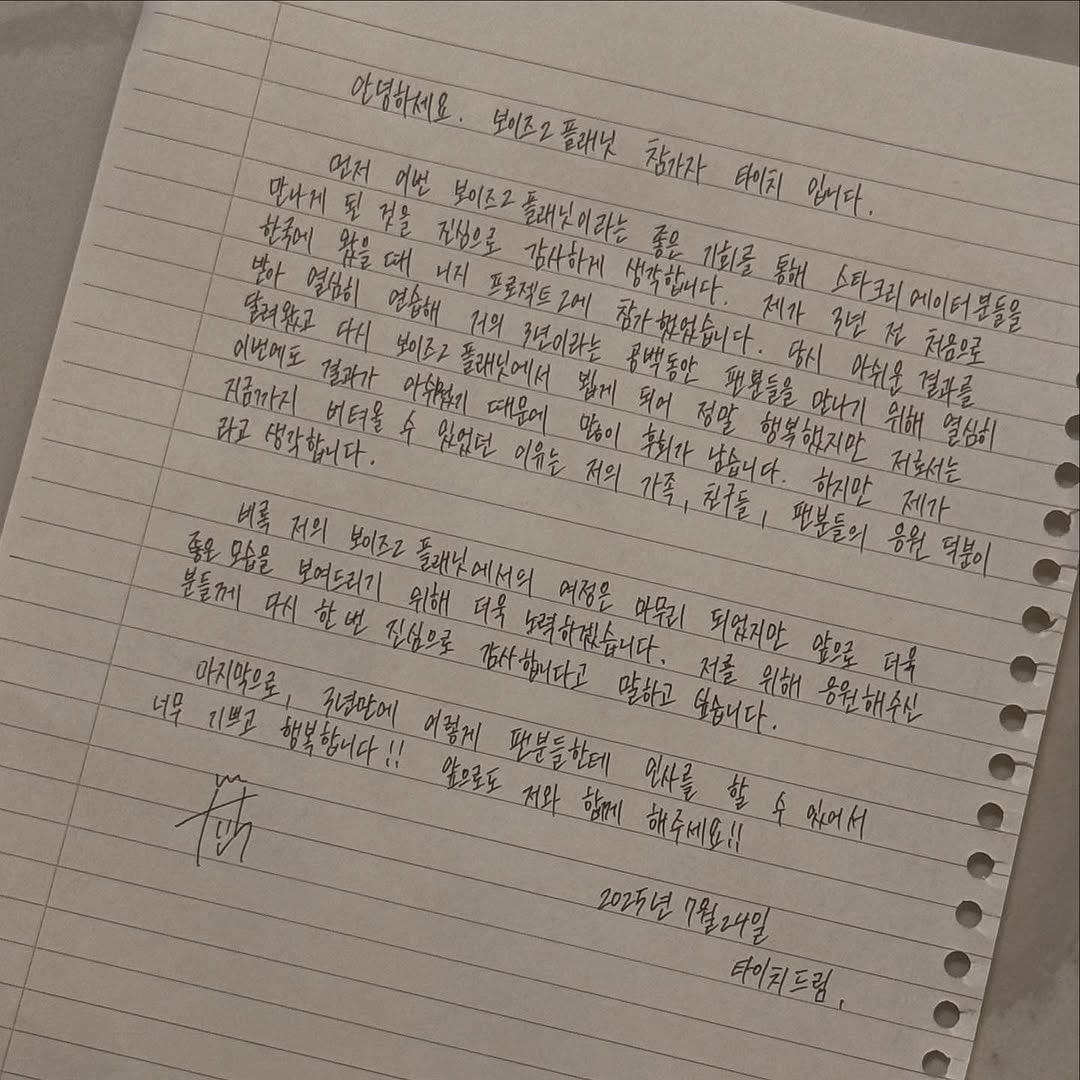 안녕하세요. 보이즈2플래닛 참가자 타이치 입니다.
먼저 이번 보이즈2플래닛이라는 좋은 기회를 통해 스타크리에이터분들을
만나게 된 것을 진심으로 감사하게 생각합니다. 제가 3년 전 처음으로
한국에 왔을때 니지 프로젝트2에 참가했었습니다. 당시 아쉬운 결과를
받아 열심히 연습해 저의 3년이라는 공백동안 팬분들을 만나기 위해 열심히
달려왔고 다시 보이즈2플래닛에서 뵙게 되어 정말 행복했지만 저로서는
이번에도 결과가 아쉬웠기 때문에 많이 후회가 남습니다. 하지만 제가
지금까지 버텨올 수 있었던 이유는 저의 가족, 친구들, 팬분들의 응원 덕분이
라고 생각합니다.
비록 저의 보이즈2플래닛에서의 여정은 마무리 되었지만 앞으로 더욱
좋은 모습을 보여드리기 위해 더욱 노력하겠습니다. 저를 위해 응원해주신
분들께 다시 한번 진심으로 감사합니다고 말하고 싶습니다.
마지막으로, 3년만에 이렇게 팬분들한테 인사를 할 수 있어서
너무 기쁘고 행복합니다!! 앞으로도 저와 함께 해주세요!!
2025년 7월 24일
타이치드림.